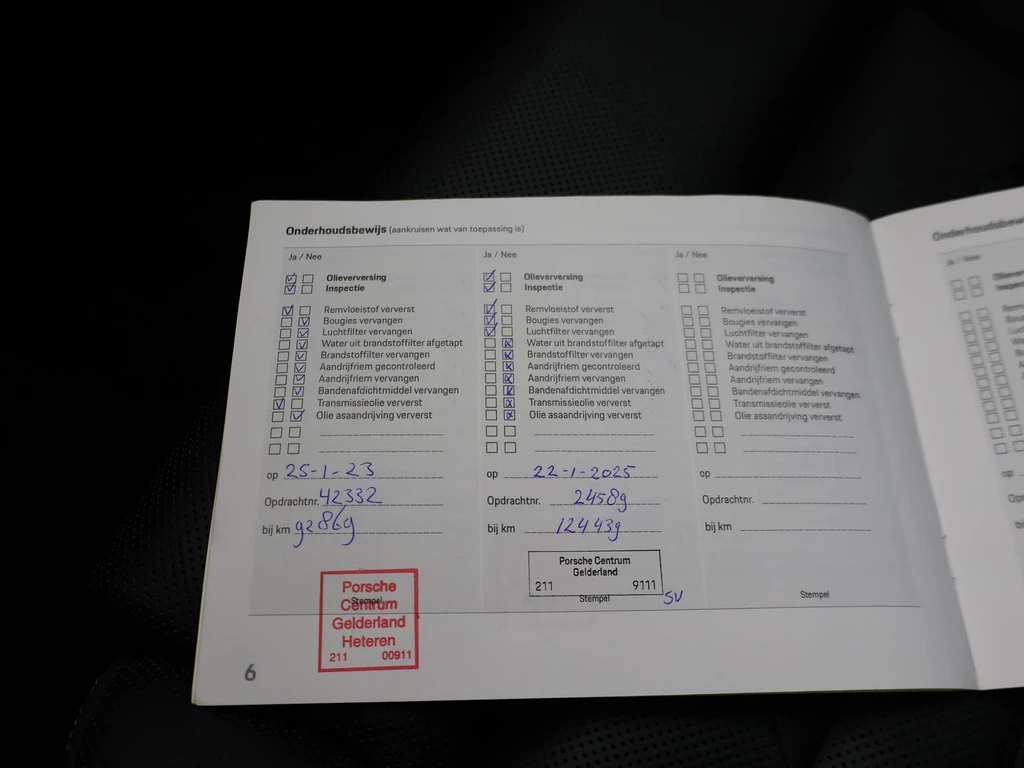 Onderhoudsbewijs (aankruisen wat van toepassing is)
Ja / Nee
Olieverversing
Inspectie
Remvloeistof ververst
Bougies vervangen
Luchtfilter vervangen
Water uit brandstoffilter afgetapt
Brandstoffilter vervangen
Aandrijfriem gecontroleerd
Aandrijfriem vervangen
Bandenafdichtmiddel vervangen
Transmissieolie ververst
Olie asaandrijving ververst
op 25-1-23
Opdrachtnr. 42332
bij km 92869
Stempel
Porsche
Centrum
Gelderland
Heteren
211 00911
Ja / Nee
Olieverversing
Inspectie
Remvloeistof ververst
Bougies vervangen
Luchtfilter vervangen
Water uit brandstoffilter afgetapt
Brandstoffilter vervangen
Aandrijfriem gecontroleerd
Aandrijfriem vervangen
Bandenafdichtmiddel vervangen
Transmissieolie ververst
Olie asaandrijving ververst
op 22-1-2025
Opdrachtnr. 24589
bij km 124439
Porsche Centrum
Gelderland
211 9111
Stempel
SV
Ja / Nee
Olieverversing
Inspectie
Remvloeistof ververst
Bougies vervangen
Luchtfilter vervangen
Water uit brandstoffilter afgetapt
Brandstoffilter vervangen
Aandrijfriem gecontroleerd
Aandrijfriem vervangen
Bandenafdichtmiddel vervangen
Transmissieolie ververst
Olie asaandrijving ververst
op
Opdrachtnr.
bij km
Stempel
6
Ja / Nee
op